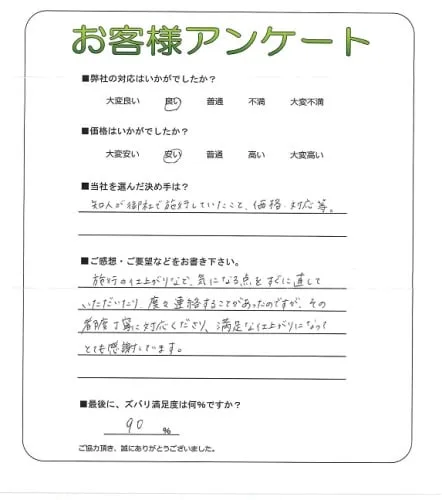 お客様アンケート
■弊社の対応はいかがでしたか?
大変良い 良い 普通 不満 大変不満
■価格はいかがでしたか?
大変安い 安い 普通 高い 大変高い
■当社を選んだ決め手は?
知人が御社で施行していたこと、価格・対応等。
■ご感想・ご要望などをお書き下さい。
施行の仕上がりなど、気になる点をすぐに直して
いただいたり、度々連絡することがあったのですが、その
都度丁寧に対応くださり、満足な仕上がりになって
とても感謝しています。
■最後に、ズバリ満足度は何%ですか?
90 %
ご協力頂き、誠にありがとうございました。